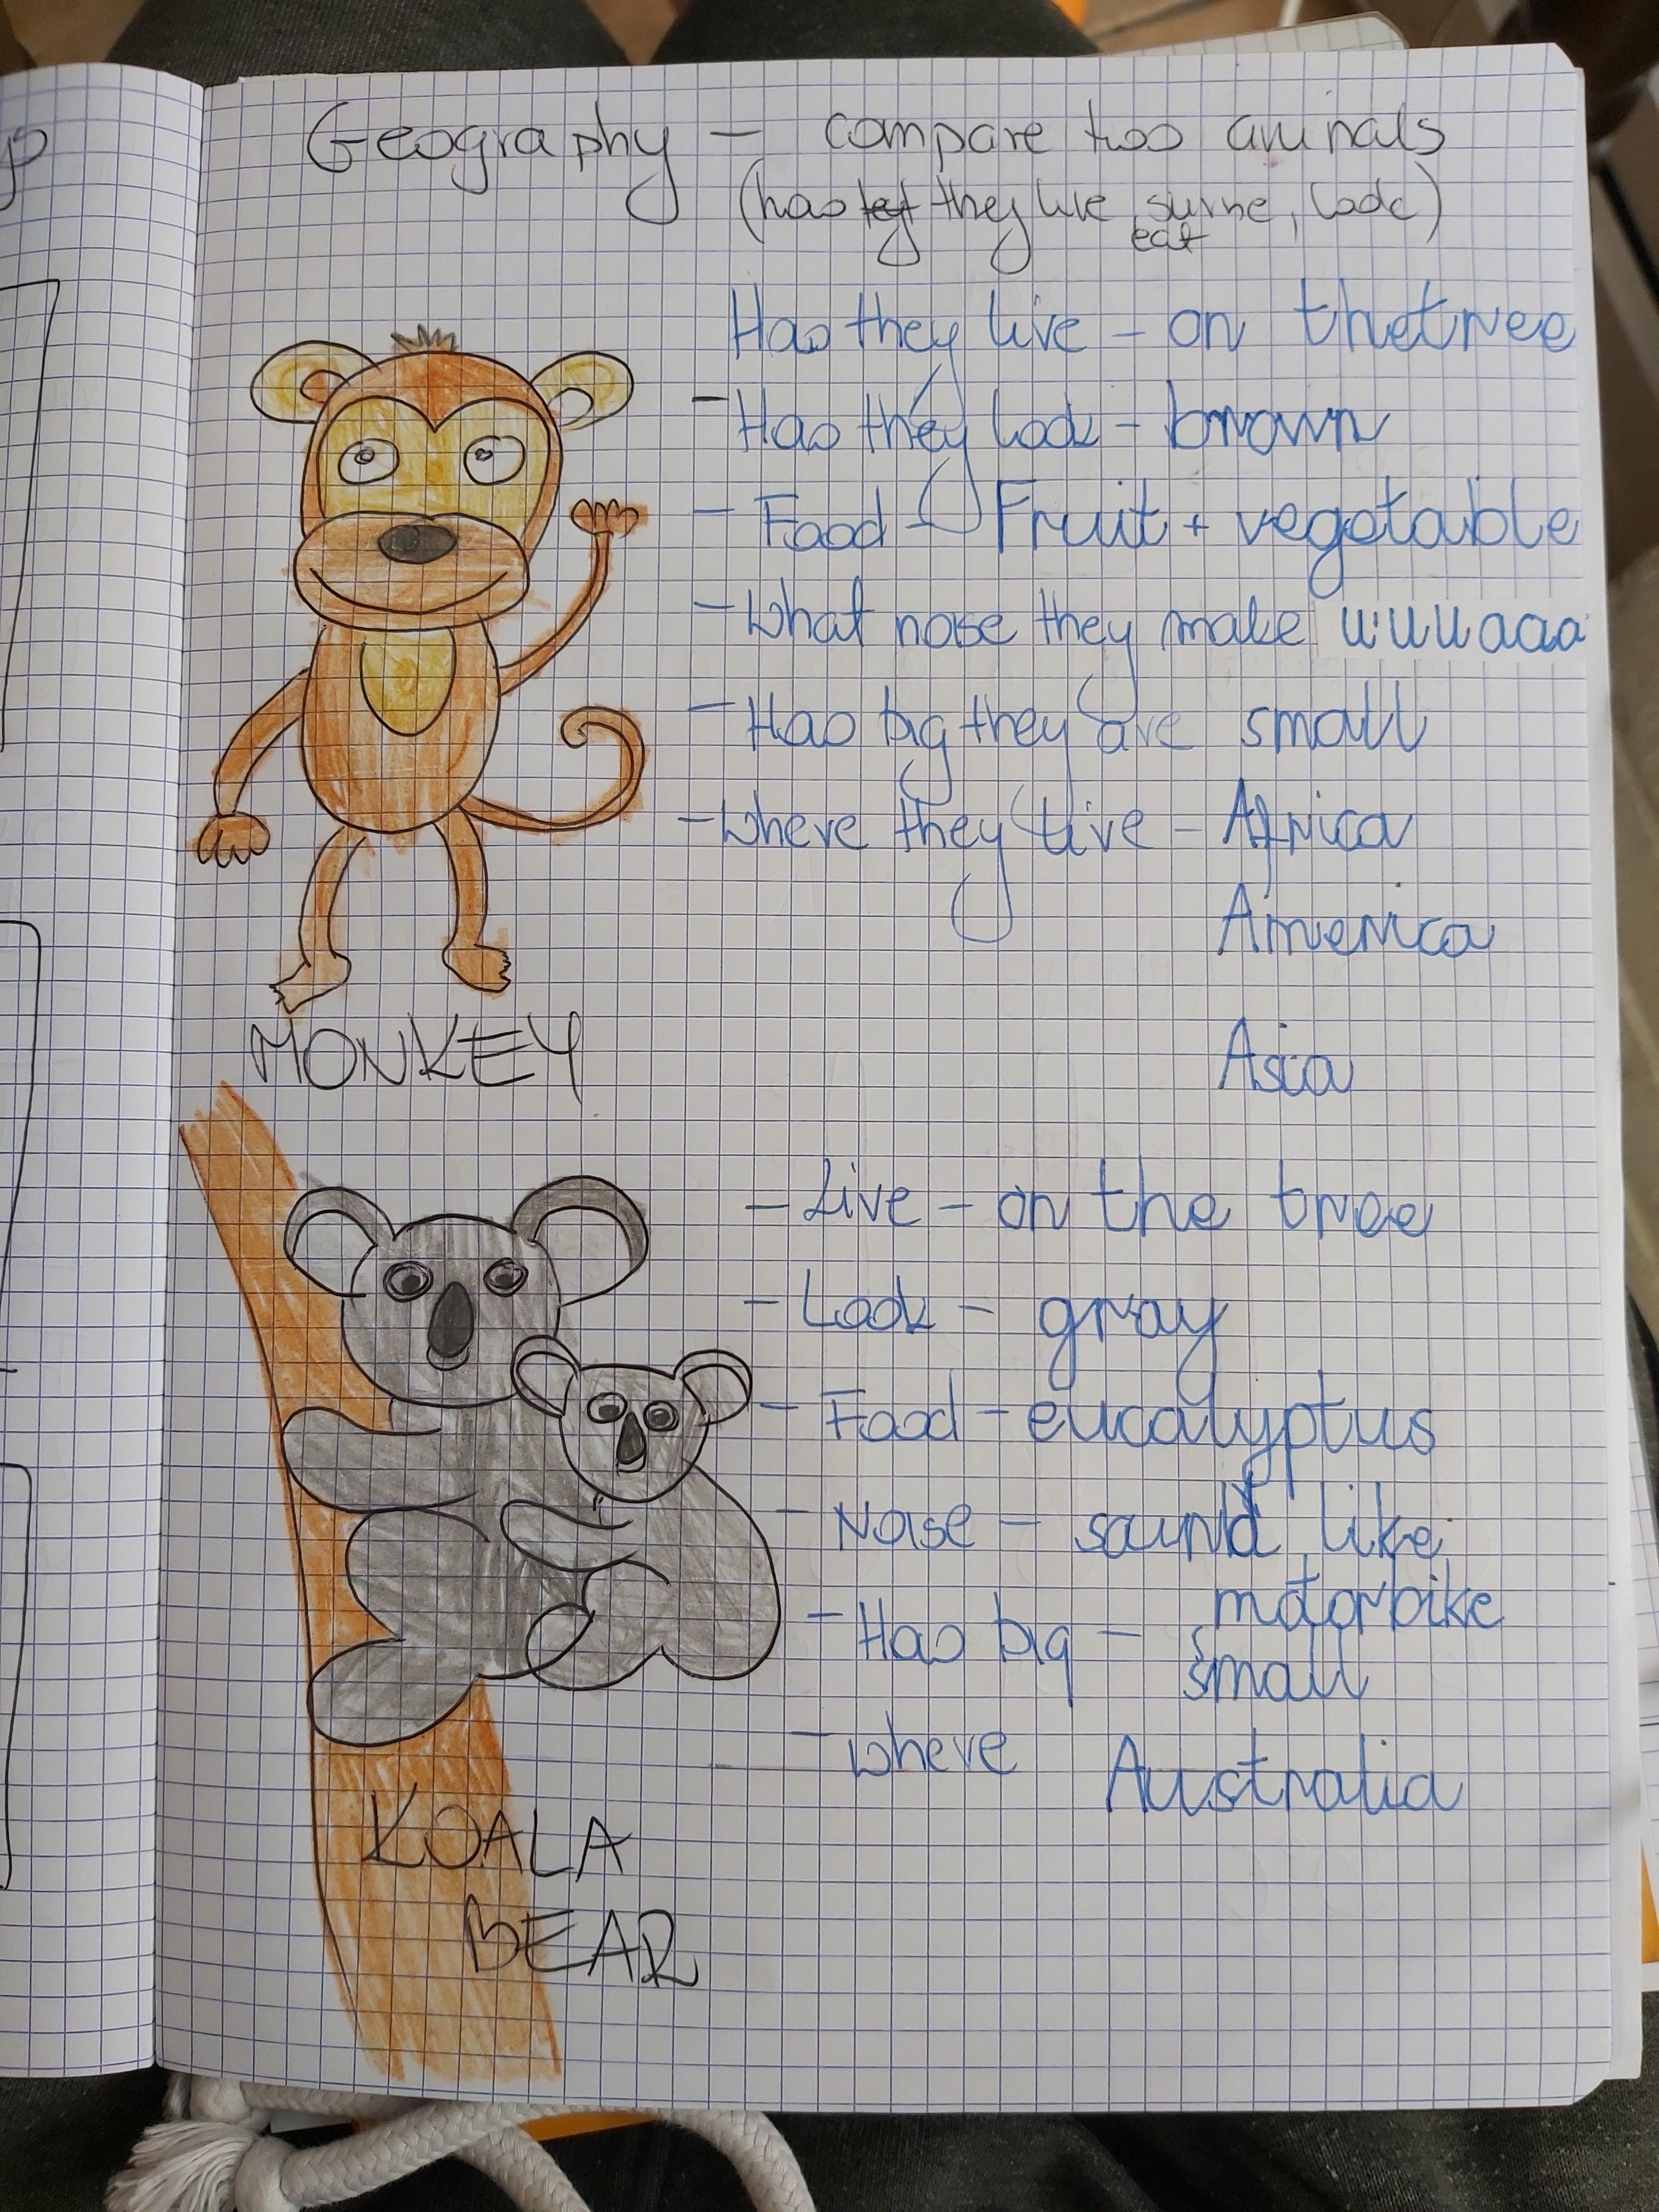 Geography – compare two animals
(hao they live, surive, look)
eat
Hao they live – on the tree
– Hao they look – brown
– Food – Fruit + vegetable
– What noise they make uuuuaaa
– Hao big they are small
– Where they live – Africa
America
Asia
MONKEY
– Live – on the tree
– Look – gray
– Food – eucalyptus
– Noise – sound like
motorbike
– Hao big – small
– where Australia
KOALA
BEAR